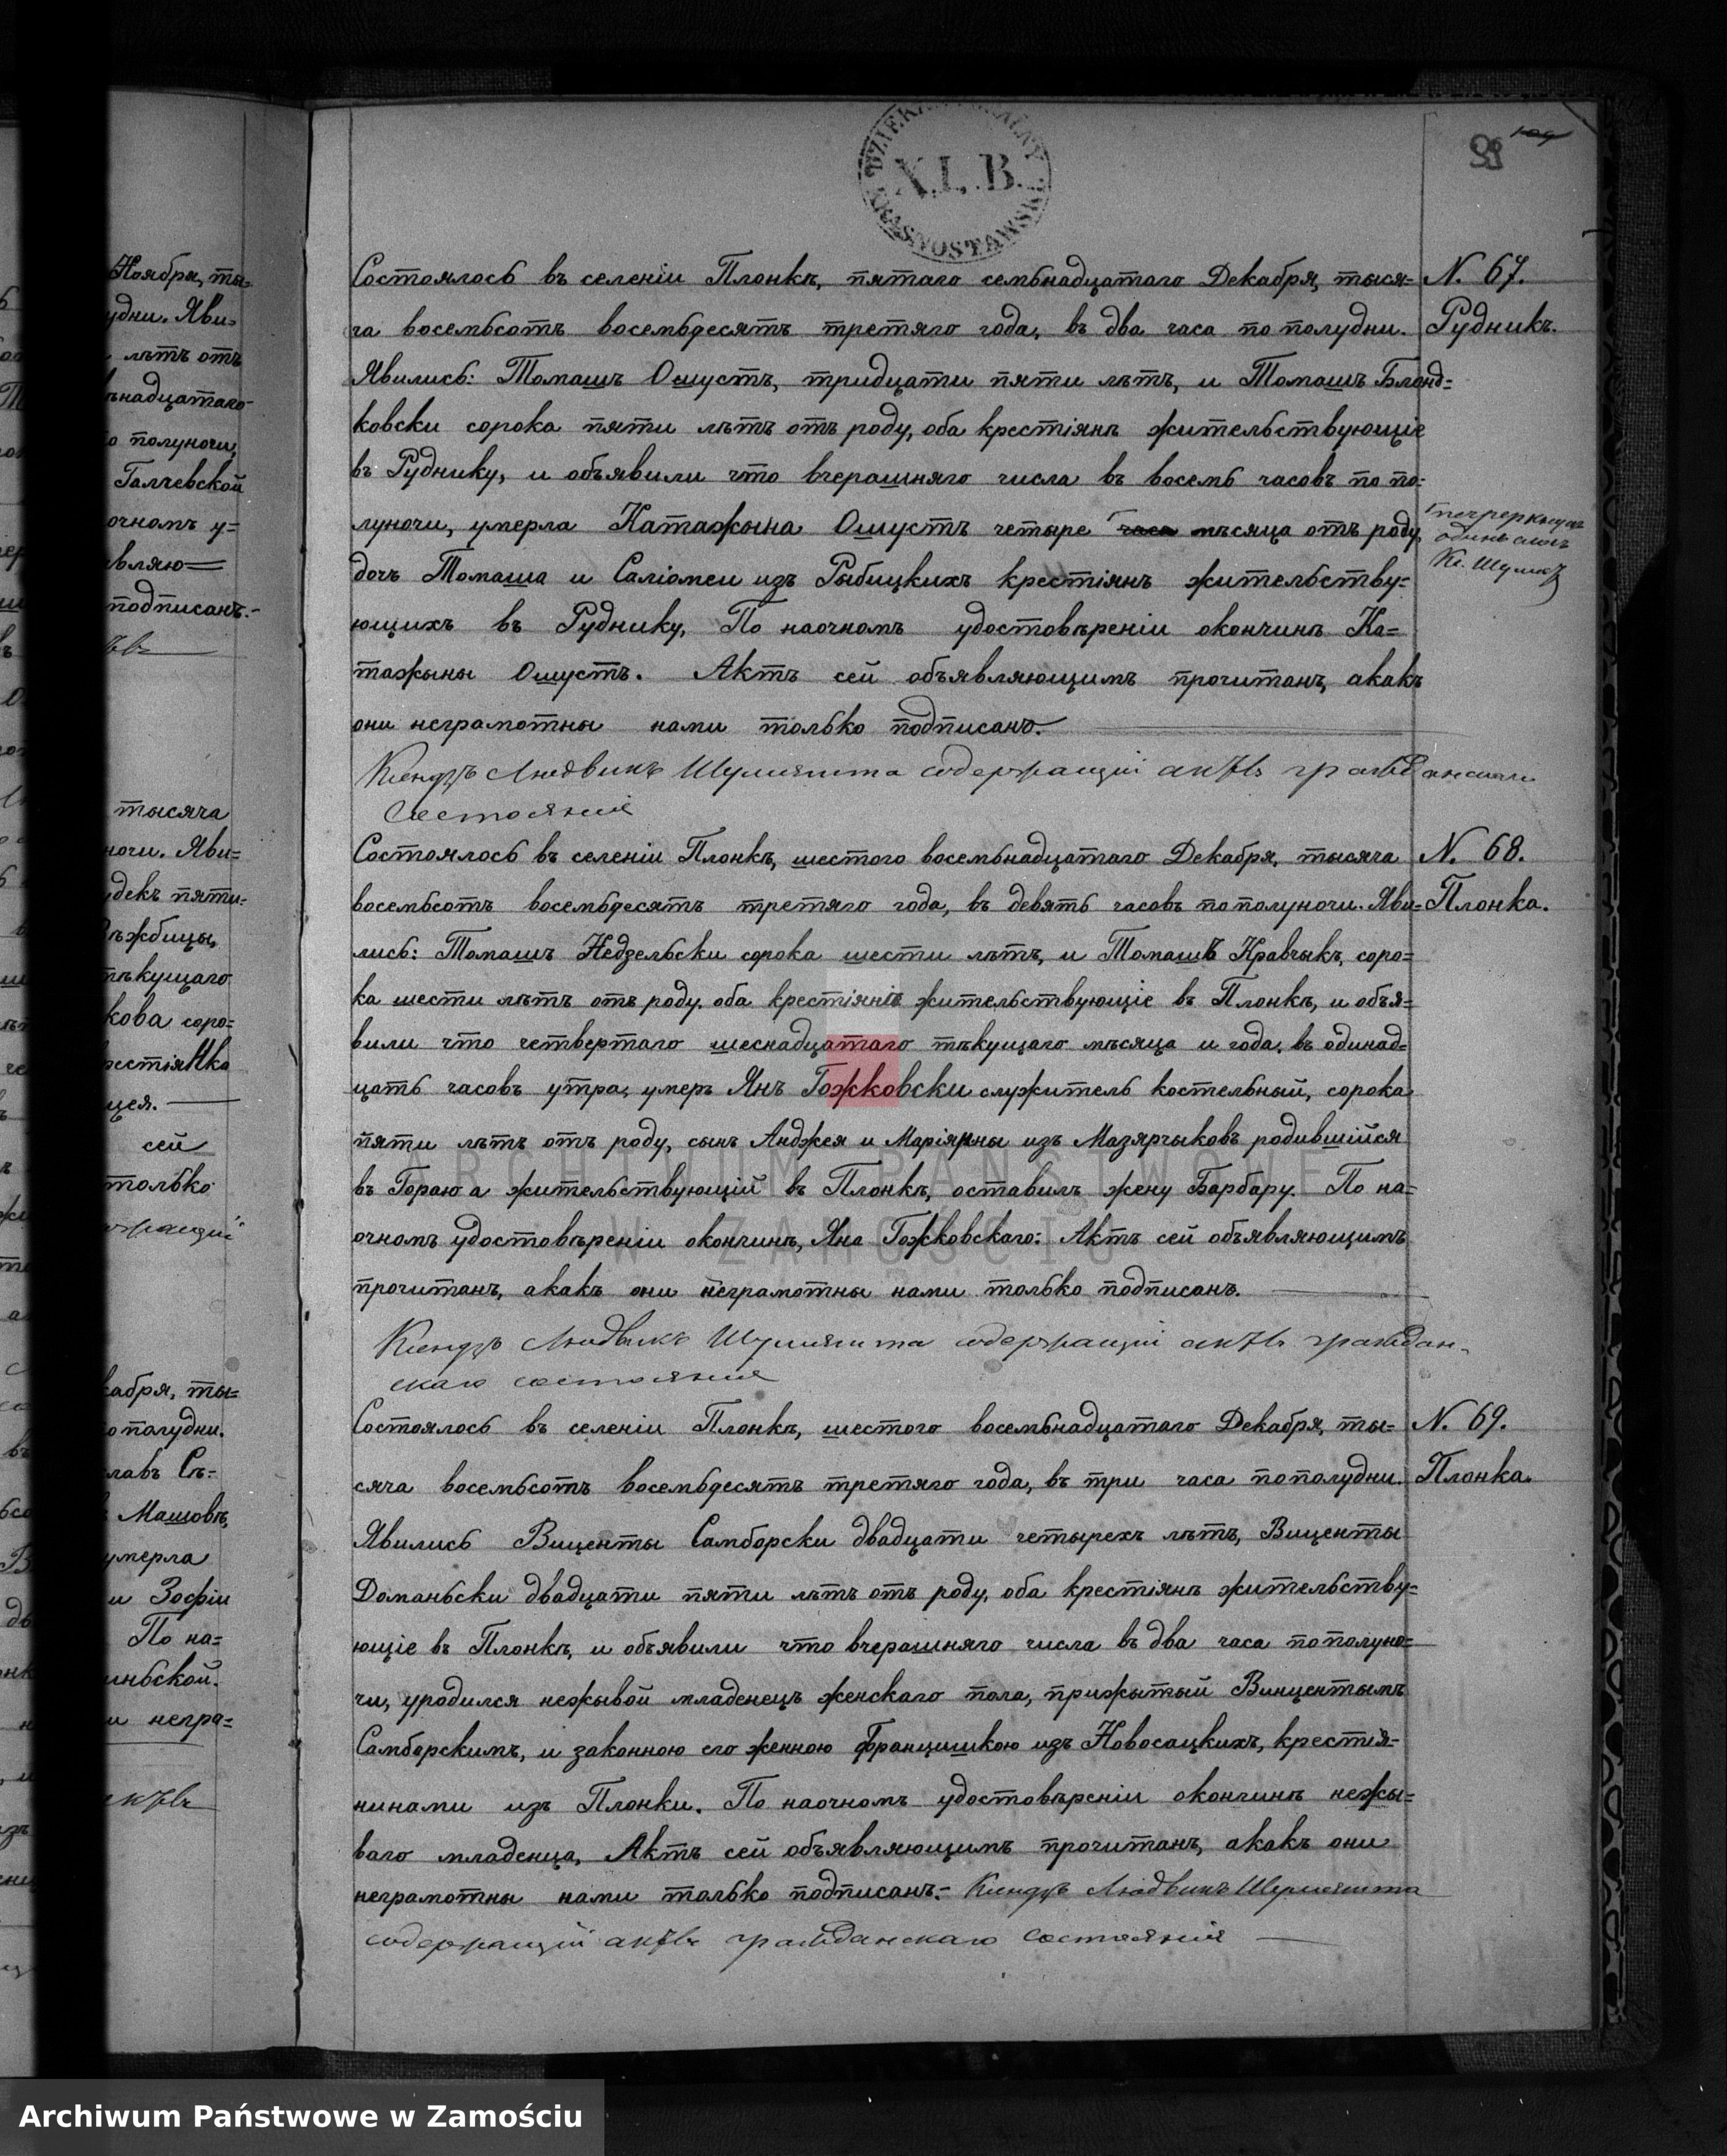 X.L.B.
KRASNOSTAWSK
N. 67.
Рудникъ.
Состоялось въ селеніи Плонкѣ, пятаго семьнадцатаго Декабря, тыся=
ча восемьсотъ восемьдесятъ третяго года, въ два часа по полудни.
Явились: Томашъ Ошустъ, тридцати пяти лѣтъ, и Томашъ Блонд=
ковски сорока пяти лѣтъ отъ роду, оба крестіянѣ жительствующіе
въ Руднику, и объявили что вчерашняго числа въ восемь часовъ по по=
луночи, умерла Катажына Ошустъ четыре часа мѣсяца отъ роду,
дочь Томаша и Саліомеи изъ Рыбицкихъ крестіянъ жительству=
ющихъ въ Руднику, По наочномъ удостовѣреніи окончинѣ Ка=
тажыны Ошустъ. Актъ сей объявляющимъ прочитанъ, акакъ
они неграмотны нами только подписанъ.
Ксендзъ Людвикъ содержащій актъ гражданскаго
состоянія
N. 68.
Плонка.
Состоялось въ селеніи Плонкѣ, шестого восемьнадцатаго Декабря, тысяча
восемьсотъ восемьдесятъ третяго года, въ девять часовъ пополуночи. Яви=
лись: Томашъ Недзельски сорока шести лѣтъ, и Томашъ Кравчыкъ, соро=
ка шести лѣтъ отъ роду, оба крестіянѣ жительствующіе въ Плонкѣ, и объя=
вили что четвертаго шеснадцатаго тѣкущаго мѣсяца и года, въ одинад=
цать часовъ утра, умеръ Янъ Гожковски служитель костельный, сорока
пяти лѣтъ отъ роду, сынъ Анджея и Маріянны изъ Мазярчыковъ родившійся
въ Гораю а жительствующій въ Плонкѣ, оставилъ жену Барбару. По на=
очномъ удостовѣреніи окончинѣ, Яна Гожковскаго: Актъ сей объявляющимъ
прочитанъ, акакъ они неграмотны нами только подписанъ.
Ксендзъ Людвикъ содержащій актъ граждан-
скаго состоянія
N. 69.
Плонка.
Состоялось въ селеніи Плонкѣ, шестого восемьнадцатаго Декабря, ты=
сяча восемьсотъ восемьдесятъ третяго года, въ три часа пополудни.
Явились Виценты Самборски двадцати четырехъ лѣтъ, Виценты
Доманьски двадцати пяти лѣтъ отъ роду, оба крестіянѣ жительству=
ющіе въ Плонкѣ, и объявили что вчерашняго числа въ два часа пополуно=
чи, уродился нежывой младенецъ женскаго пола, прижытый Винцентымъ
Самборскимъ, и законною его женною Францишкою изъ Новосацкихъ, крестія=
нинами изъ Плонки. По наочномъ удостовѣреніи окончинѣ нежы=
ваго младенца, Актъ сей объявляющимъ прочитанъ, акакъ они
неграмотны нами только подписанъ:- Ксендзъ Людвикъ
содержащій актъ гражданскаго состоянія
ARCHIWUM PAŃSTWOWE
W ZAMOŚCIU
Archiwum Państwowe w Zamościu